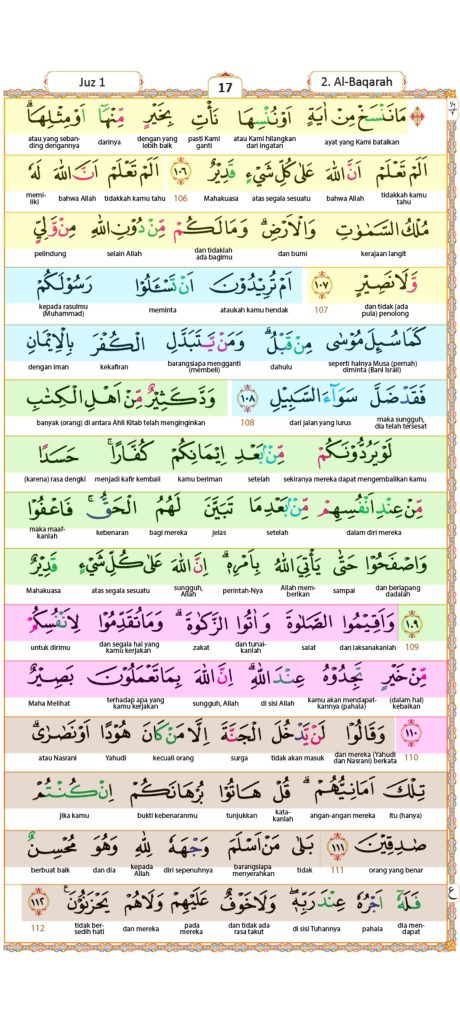 Juz 1 17 2. Al-Baqarah
مَا نَنْسَخْ مِنْ اٰيَةٍ اَوْ نُنْسِهَا نَأْتِ بِخَيْرٍ مِّنْهَآ اَوْ مِثْلِهَاۗ
ayat yang Kami batalkan atau Kami hilangkan dari ingatan pasti Kami ganti dengan yang lebih baik darinya atau yang seban-ding dengannya
اَلَمْ تَعْلَمْ اَنَّ اللّٰهَ عَلٰى كُلِّ شَيْءٍ قَدِيْرٌ ١٠٦ اَلَمْ تَعْلَمْ اَنَّ اللّٰهَ لَهٗ
tidakkah kamu tahu bahwa Allah atas segala sesuatu Mahakuasa 106 tidakkah kamu tahu bahwa Allah memi-liki
مُلْكُ السَّمٰوٰتِ وَالْاَرْضِۗ وَمَا لَكُمْ مِّنْ دُوْنِ اللّٰهِ مِنْ وَّلِيٍّ
kerajaan langit dan bumi dan tidaklah ada bagimu selain Allah pelindung
وَّلَا نَصِيْرٍ ١٠٧ اَمْ تُرِيْدُوْنَ اَنْ تَسْـَٔلُوْا رَسُوْلَكُمْ
dan tidak (ada pula) penolong 107 ataukah kamu hendak meminta kepada rasulmu (Muhammad)
كَمَا سُىِٕلَ مُوْسٰى مِنْ قَبْلُۗ وَمَنْ يَّتَبَدَّلِ الْكُفْرَ بِالْاِيْمَانِ
seperti halnya Musa (pernah) diminta (Bani Israil) dahulu barangsiapa mengganti (membeli) kekafiran dengan iman
فَقَدْ ضَلَّ سَوَاۤءَ السَّبِيْلِ ١٠٨ وَدَّ كَثِيْرٌ مِّنْ اَهْلِ الْكِتٰبِ
maka sungguh, dia telah tersesat dari jalan yang lurus 108 banyak (orang) di antara Ahli Kitab telah menginginkan
لَوْ يَرُدُّوْنَكُمْ مِّنْۢ بَعْدِ اِيْمَانِكُمْ كُفَّارًاۚ حَسَدًا
sekiranya mereka dapat mengembalikan kamu setelah kamu beriman menjadi kafir kembali (karena) rasa dengki
مِّنْ عِنْدِ اَنْفُسِهِمْ مِّنْۢ بَعْدِ مَا تَبَيَّنَ لَهُمُ الْحَقُّۚ فَاعْفُوْا
dalam diri mereka setelah jelas bagi mereka kebenaran maka maaf-kanlah
وَاصْفَحُوْا حَتّٰى يَأْتِيَ اللّٰهُ بِاَمْرِهٖۗ اِنَّ اللّٰهَ عَلٰى كُلِّ شَيْءٍ قَدِيْرٌ
dan berlapang dadalah sampai Allah mem-berikan perintah-Nya sungguh, Allah atas segala sesuatu Mahakuasa
١٠٩ وَاَقِيْمُوا الصَّلٰوةَ وَاٰتُوا الزَّكٰوةَۗ وَمَا تُقَدِّمُوْا لِاَنْفُسِكُمْ
109 dan laksanakanlah salat dan tunai-kanlah zakat dan segala hal yang kamu kerjakan untuk dirimu
مِّنْ خَيْرٍ تَجِدُوْهُ عِنْدَ اللّٰهِۗ اِنَّ اللّٰهَ بِمَا تَعْمَلُوْنَ بَصِيْرٌ
(dalam hal) kebaikan kamu akan mendapat-kannya (pahala) di sisi Allah sungguh, Allah terhadap apa yang kamu kerjakan Maha Melihat
١١٠ وَقَالُوْا لَنْ يَّدْخُلَ الْجَنَّةَ اِلَّا مَنْ كَانَ هُوْدًا اَوْ نَصٰرٰىۗ
110 dan mereka (Yahudi dan Nasrani) berkata tidak akan masuk surga kecuali orang Yahudi atau Nasrani
تِلْكَ اَمَانِيُّهُمْۗ قُلْ هَاتُوْا بُرْهَانَكُمْ اِنْ كُنْتُمْ
itu (hanya) angan-angan mereka kata-kanlah tunjukkan bukti kebenaranmu jika kamu
صٰدِقِيْنَ ١١١ بَلٰى مَنْ اَسْلَمَ وَجْهَهٗ لِلّٰهِ وَهُوَ مُحْسِنٌ
orang yang benar 111 tidak barangsiapa menyerahkan diri sepenuhnya kepada Allah dan dia berbuat baik
فَلَهٗٓ اَجْرُهٗ عِنْدَ رَبِّهٖۖ وَلَا خَوْفٌ عَلَيْهِمْ وَلَا هُمْ يَحْزَنُوْنَ ١١٢ ع
dia men-dapat pahala di sisi Tuhannya dan tidak ada rasa takut pada mereka dan mereka tidak ber-sedih hati 112